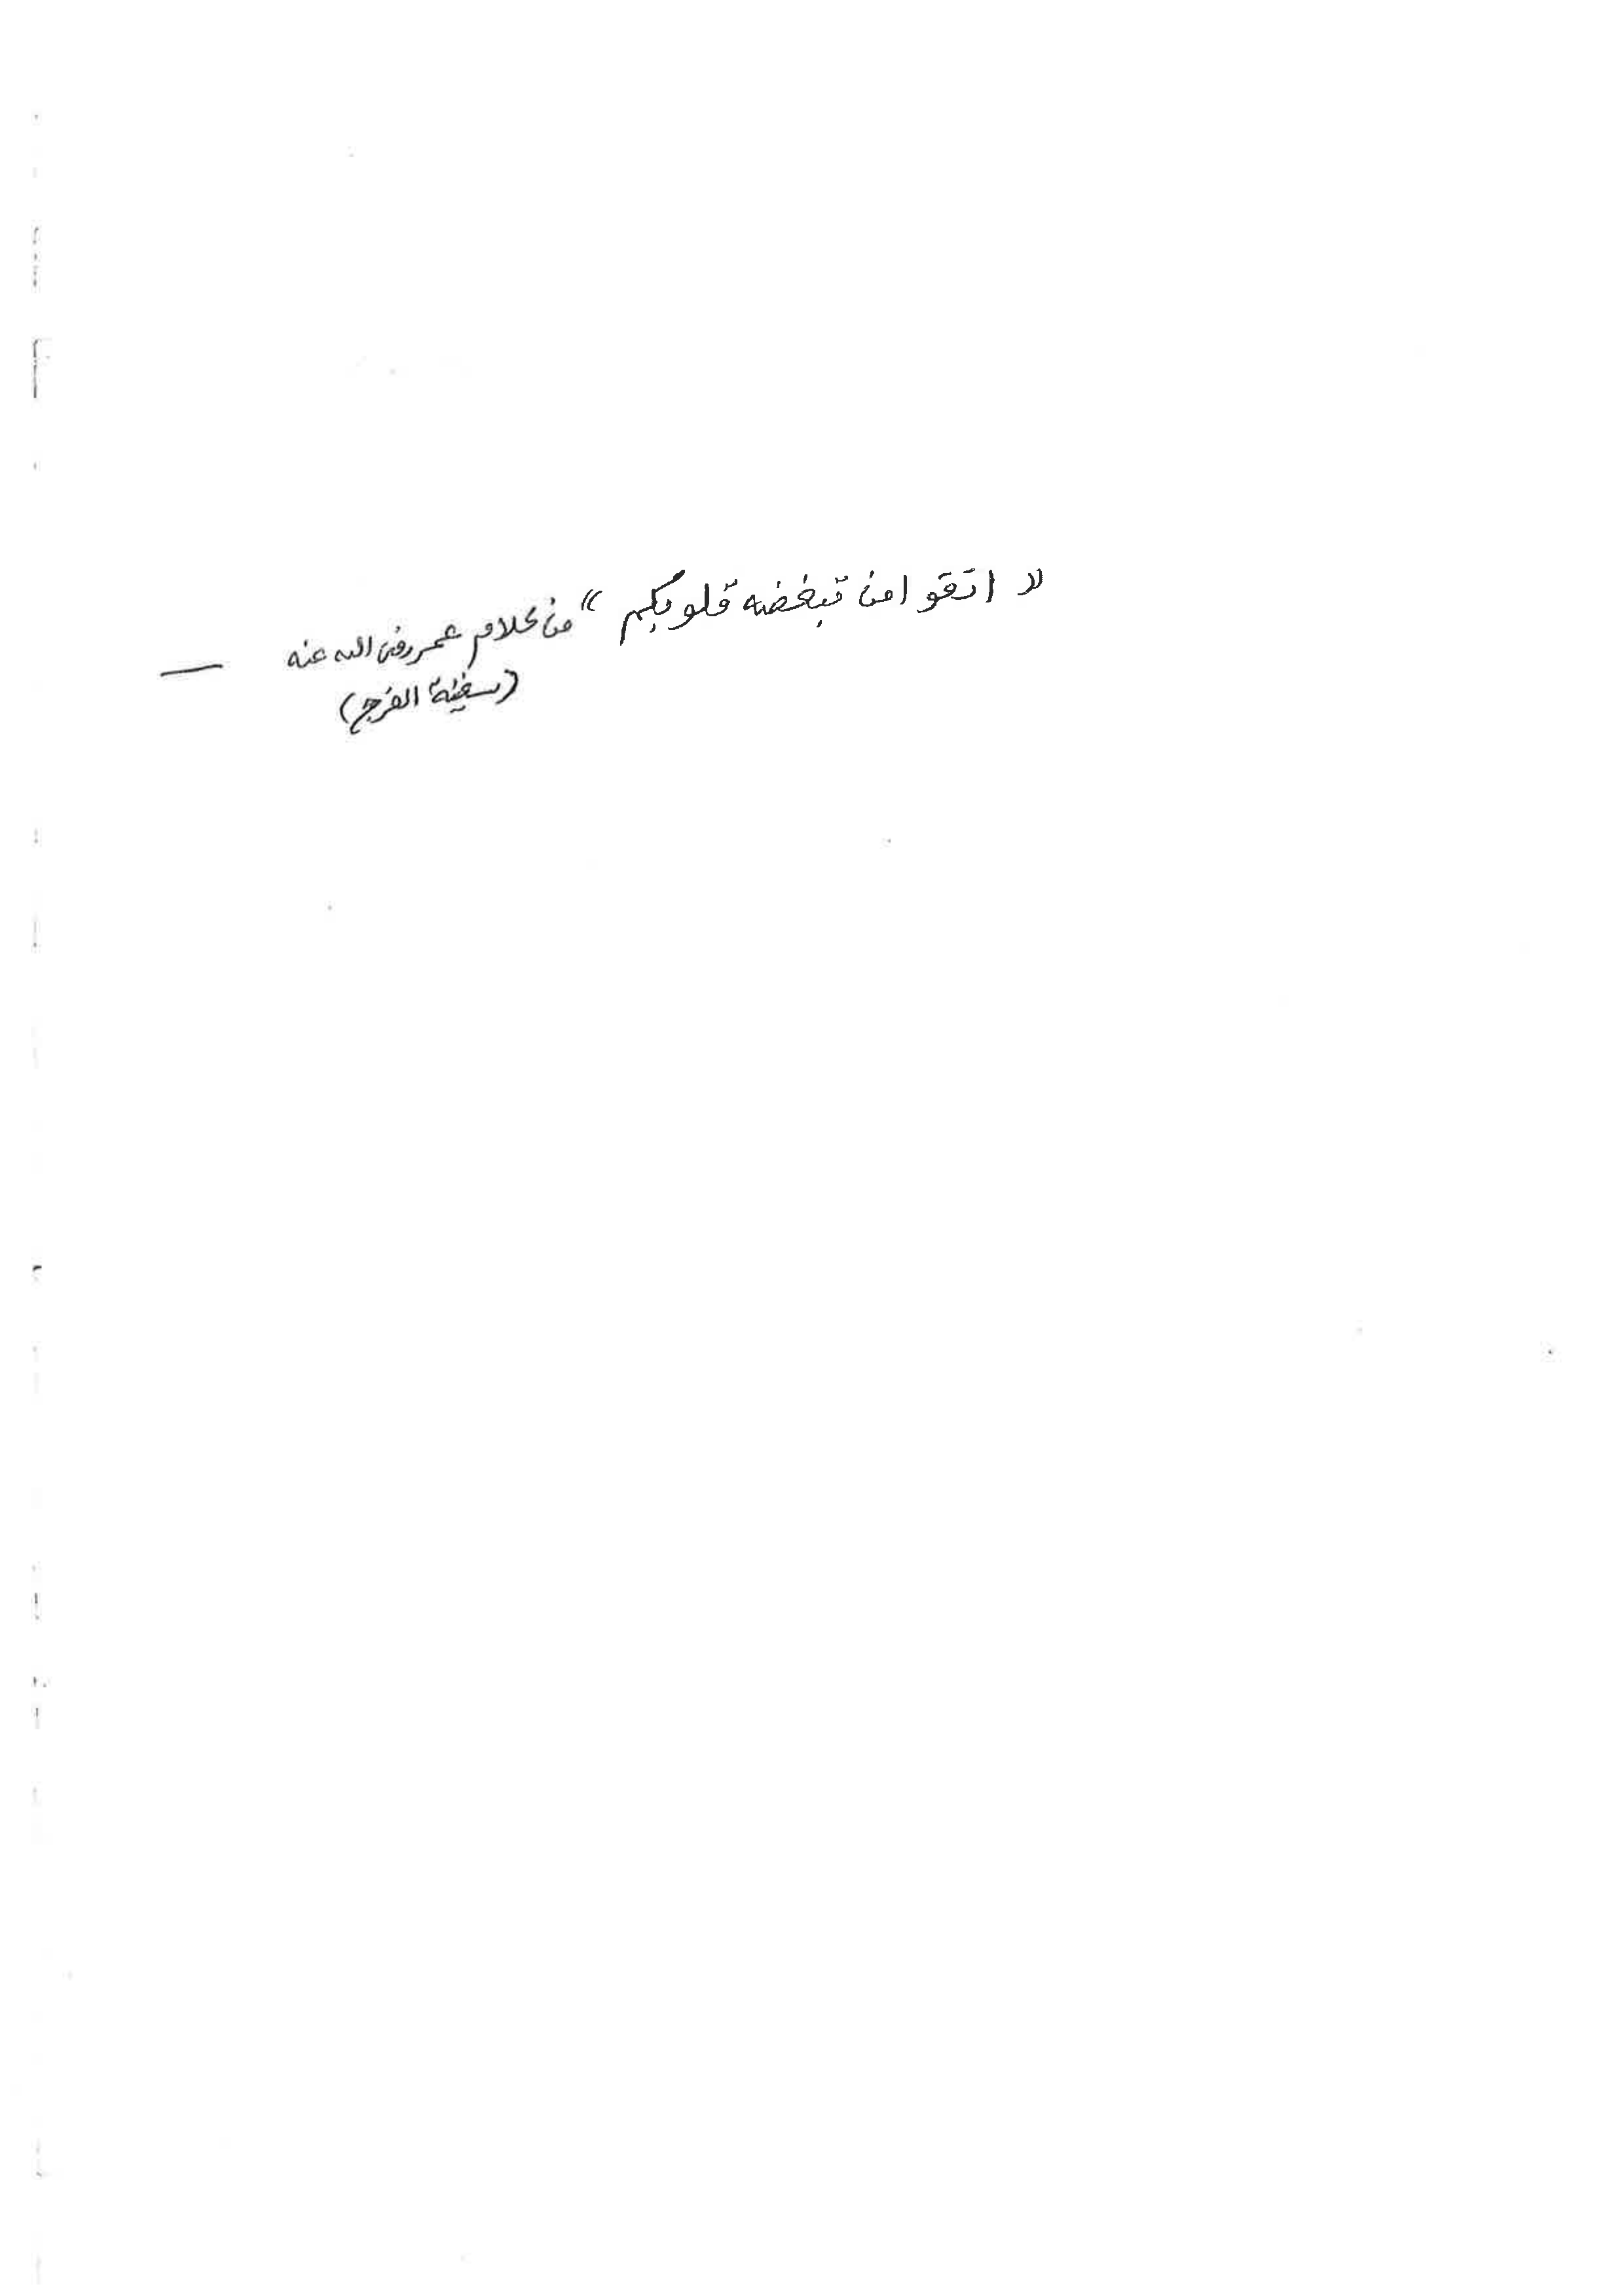 " اتقوا من تبغضه قلوبكم " من كلام عمر رضى الله عنه —
(سفينة الفرج)